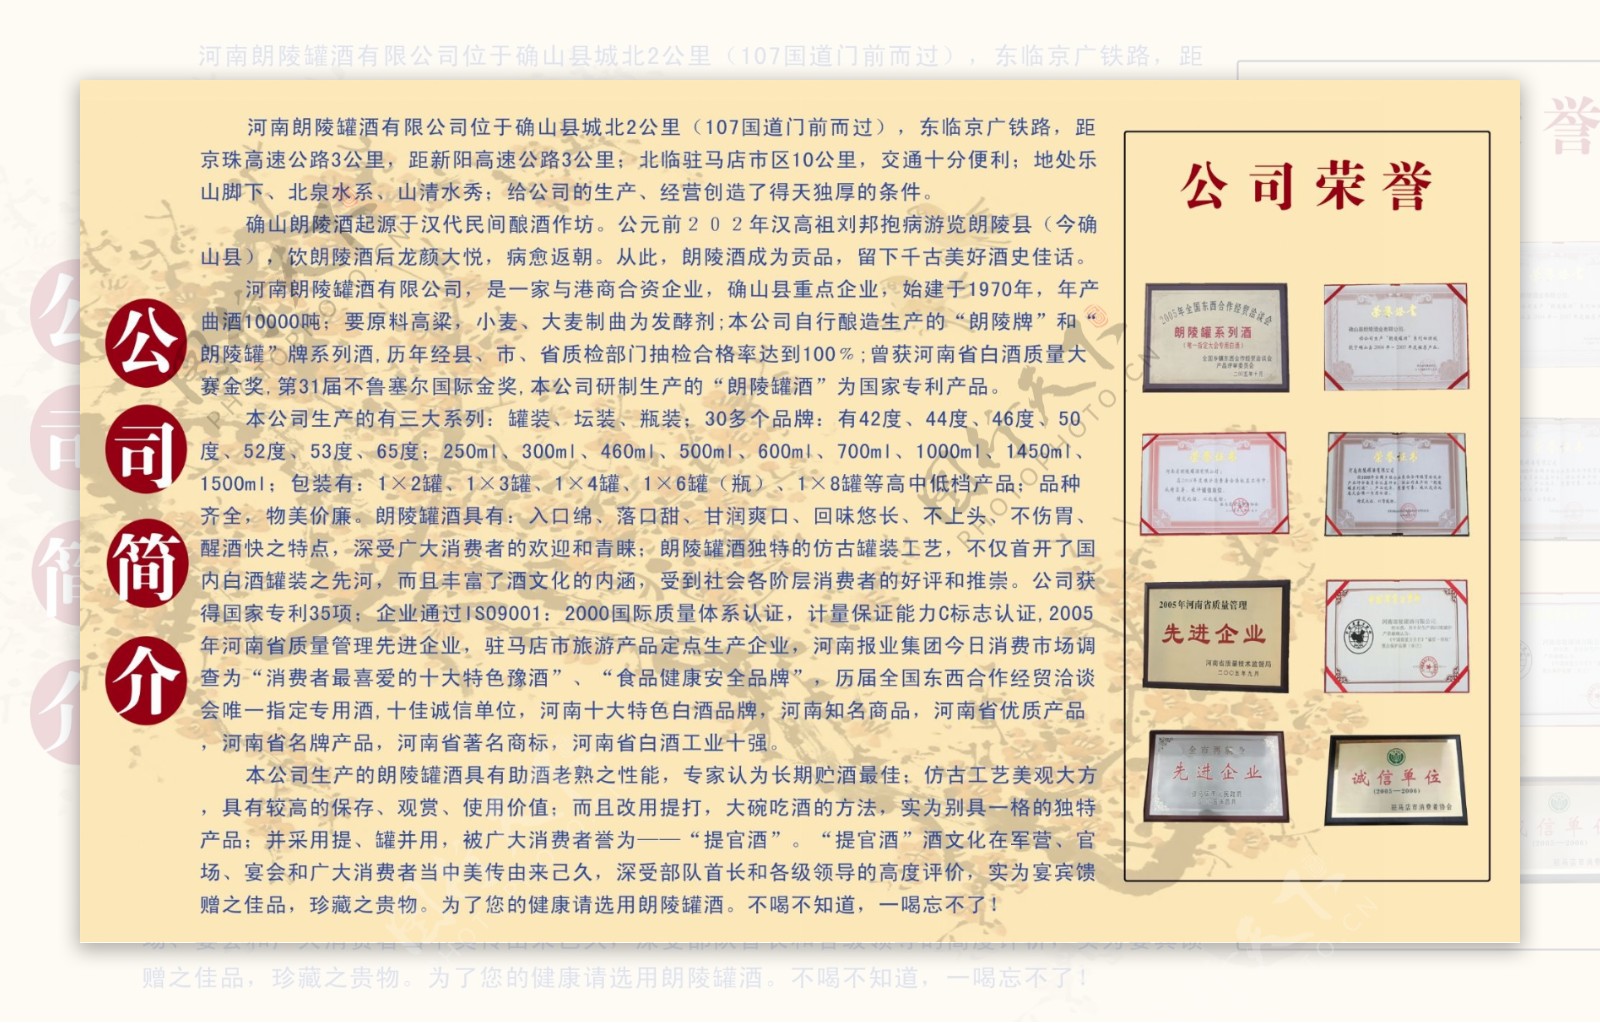 河南朗陵罐酒有限公司位于确山县城北2公里（107国道门前而过），东临京广铁路，距
公司简介
河南朗陵罐酒有限公司位于确山县城北2公里（107国道门前而过），东临京广铁路，距
京珠高速公路3公里，距新阳高速公路3公里；北临驻马店市区10公里，交通十分便利；地处乐
山脚下、北泉水系、山清水秀；给公司的生产、经营创造了得天独厚的条件。
确山朗陵酒起源于汉代民间酿酒作坊。公元前２０２年汉高祖刘邦抱病游览朗陵县（今确
山县），饮朗陵酒后龙颜大悦，病愈返朝。从此，朗陵酒成为贡品，留下千古美好酒史佳话。
河南朗陵罐酒有限公司，是一家与港商合资企业，确山县重点企业，始建于1970年，年产
曲酒10000吨；要原料高粱，小麦、大麦制曲为发酵剂;本公司自行酿造生产的“朗陵牌”和“
朗陵罐”牌系列酒,历年经县、市、省质检部门抽检合格率达到100％;曾获河南省白酒质量大
赛金奖,第31届不鲁塞尔国际金奖,本公司研制生产的“朗陵罐酒”为国家专利产品。
本公司生产的有三大系列：罐装、坛装、瓶装；30多个品牌：有42度、44度、46度、50
度、52度、53度、65度；250ml、300ml、460ml、500ml、600ml、700ml、1000ml、1450ml、
1500ml；包装有：1×2罐、1×3罐、1×4罐、1×6罐（瓶）、1×8罐等高中低档产品；品种
齐全，物美价廉。朗陵罐酒具有：入口绵、落口甜、甘润爽口、回味悠长、不上头、不伤胃、
醒酒快之特点，深受广大消费者的欢迎和青睐；朗陵罐酒独特的仿古罐装工艺，不仅首开了国
内白酒罐装之先河，而且丰富了酒文化的内涵，受到社会各阶层消费者的好评和推崇。公司获
得国家专利35项；企业通过ISO9001：2000国际质量体系认证，计量保证能力C标志认证,2005
年河南省质量管理先进企业，驻马店市旅游产品定点生产企业，河南报业集团今日消费市场调
查为“消费者最喜爱的十大特色豫酒”、“食品健康安全品牌”，历届全国东西合作经贸洽谈
会唯一指定专用酒,十佳诚信单位，河南十大特色白酒品牌，河南知名商品，河南省优质产品
，河南省名牌产品，河南省著名商标，河南省白酒工业十强。
本公司生产的朗陵罐酒具有助酒老熟之性能，专家认为长期贮酒最佳；仿古工艺美观大方
，具有较高的保存、观赏、使用价值；而且改用提打，大碗吃酒的方法，实为别具一格的独特
产品；并采用提、罐并用，被广大消费者誉为——“提官酒”。“提官酒”酒文化在军营、官
场、宴会和广大消费者当中美传由来己久，深受部队首长和各级领导的高度评价，实为宴宾馈
赠之佳品，珍藏之贵物。为了您的健康请选用朗陵罐酒。不喝不知道，一喝忘不了！
公司荣誉
2005年全国东西合作经贸洽谈会
朗陵罐系列酒
2005年河南省质量管理
先进企业
河南省质量技术监督局
二〇〇五年九月
先进企业
诚信单位
(2005—2006)
驻马店市消费者协会
赠之佳品，珍藏之贵物。为了您的健康请选用朗陵罐酒。不喝不知道，一喝忘不了！